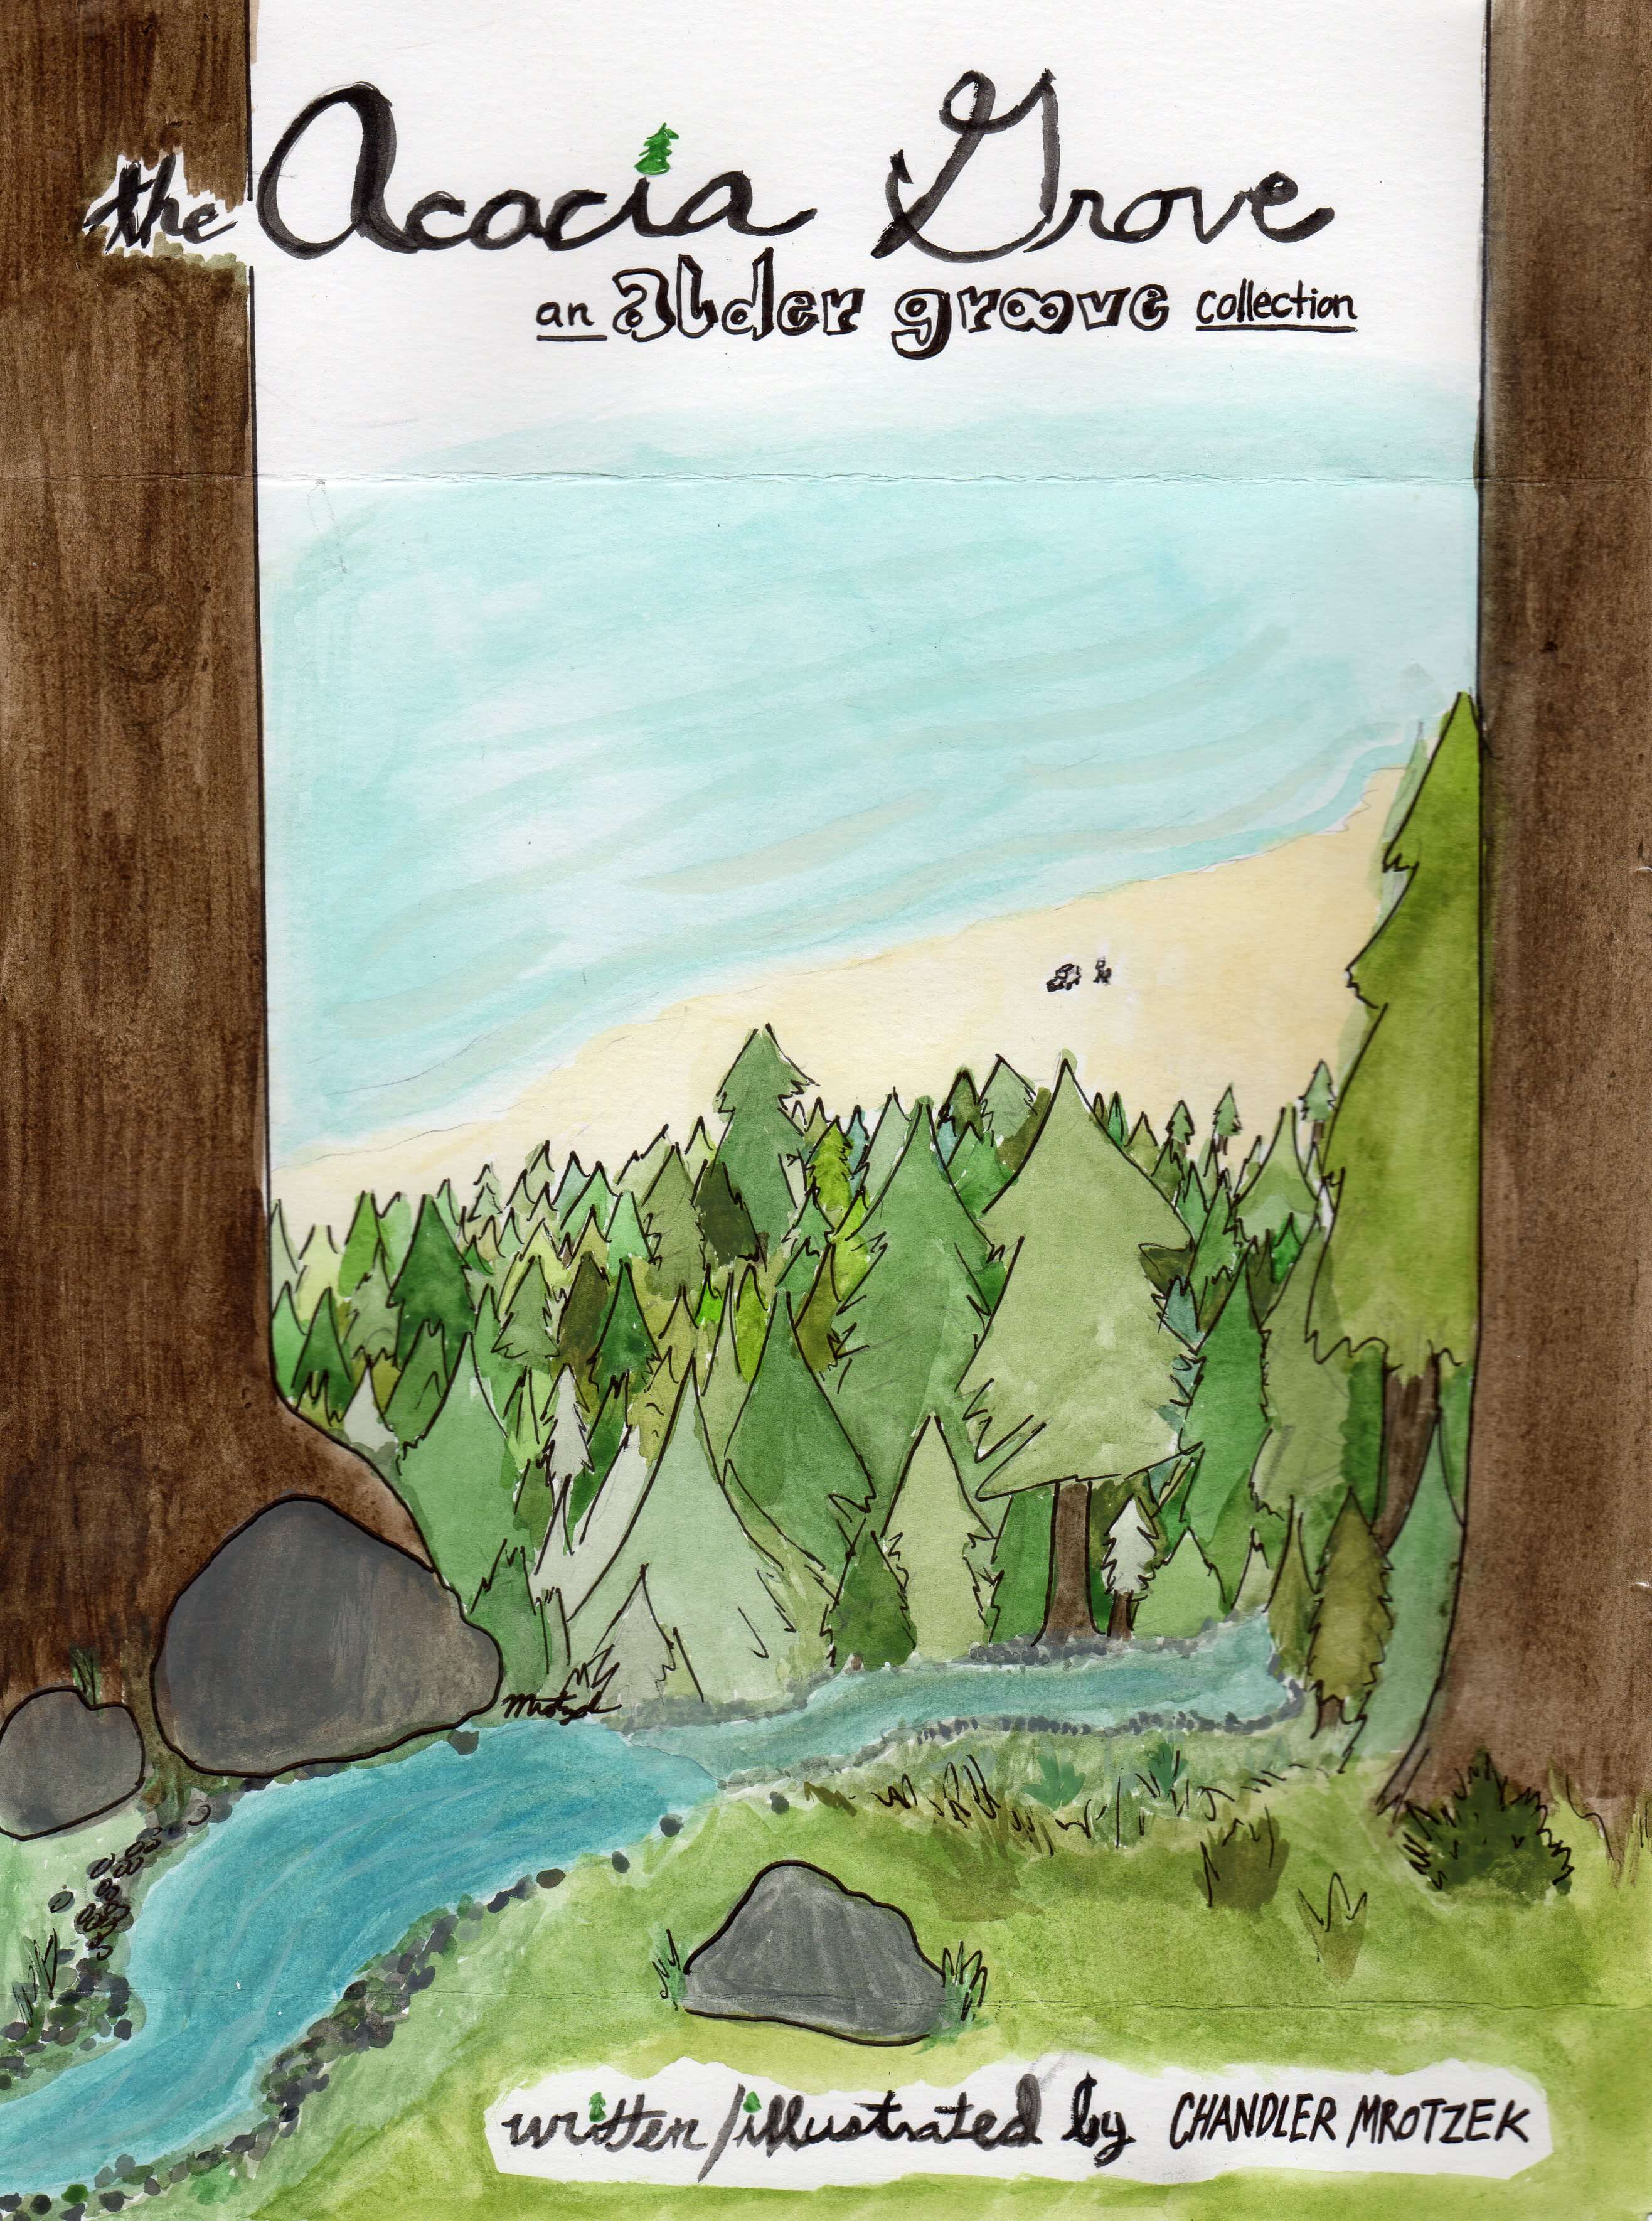 the Acacia Grove
an alder groove collection
Mrotzek
written/illustrated by CHANDLER MROTZEK